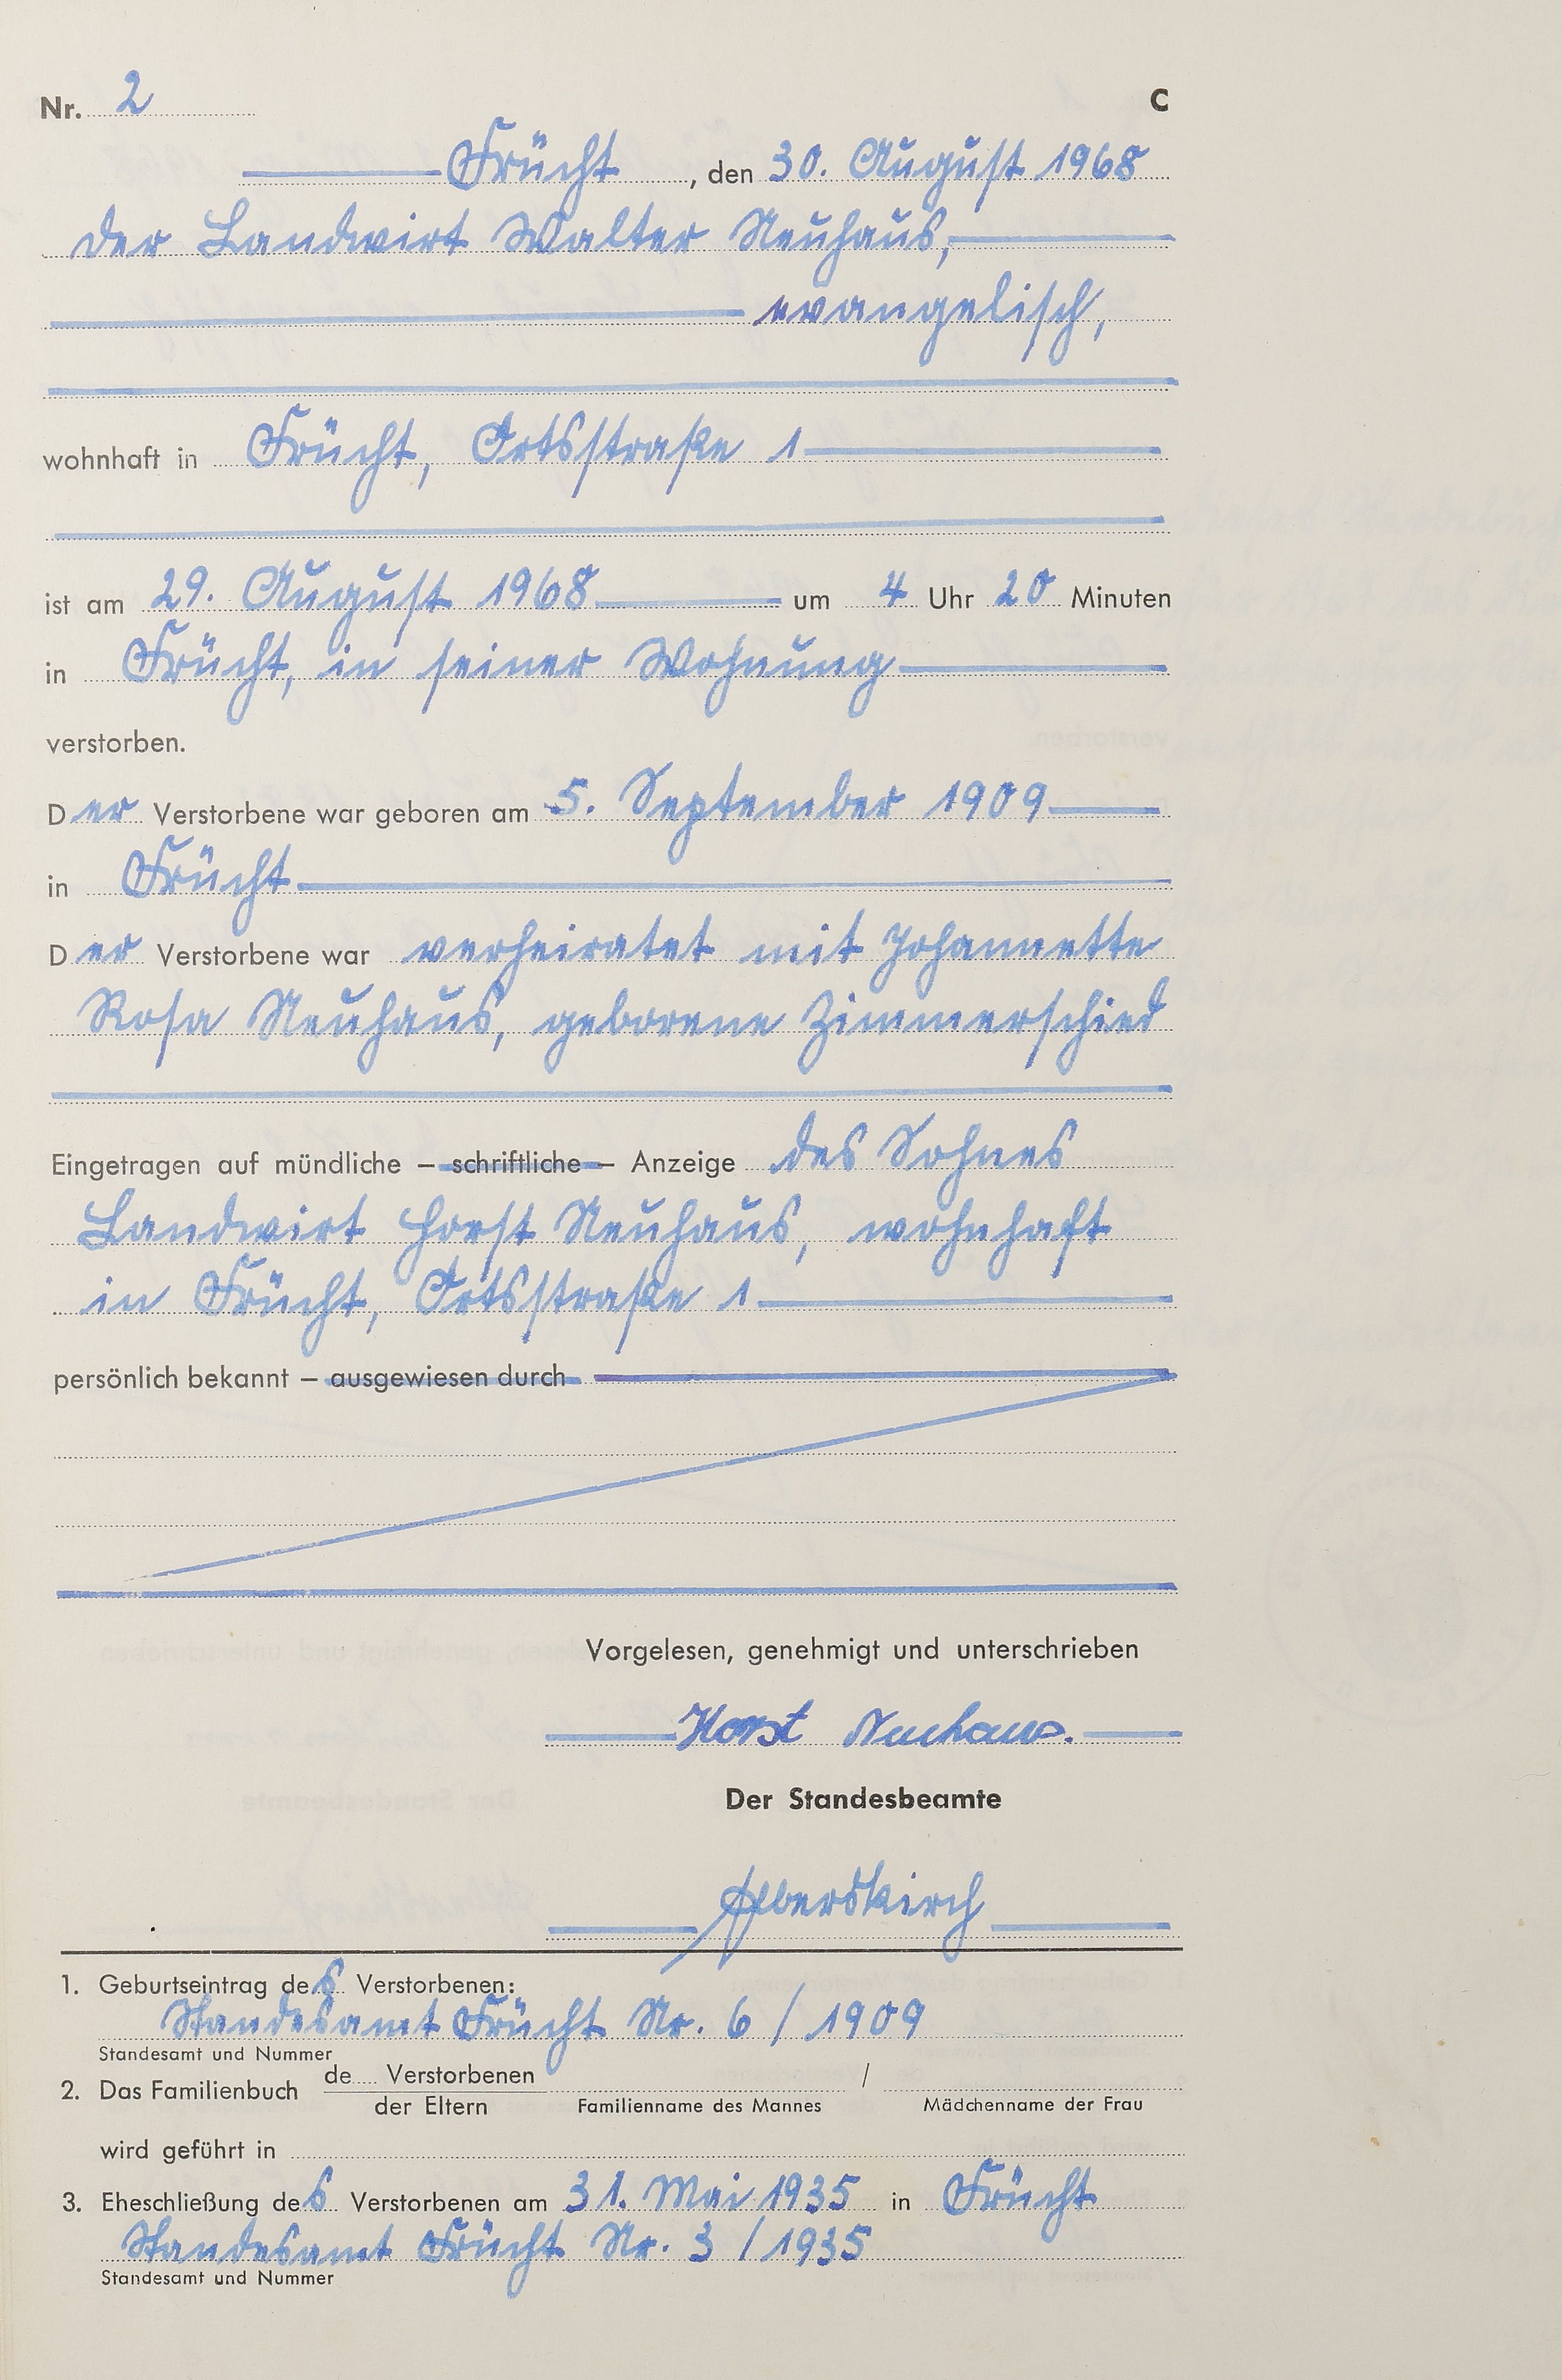 Nr. 2 C
Frücht, den 30. August 1968
der Landwirt Walter Neuhaus,
evangelisch,
wohnhaft in Frücht, Ortsstraße 1
ist am 29. August 1968 um 4 Uhr 20 Minuten
in Frücht, in seiner Wohnung
verstorben.
Der Verstorbene war geboren am 5. September 1909
in Frücht
Der Verstorbene war verheiratet mit Johannette
Rosa Neuhaus, geborene Zimmerschied
Eingetragen auf mündliche – schriftliche – Anzeige des Sohnes
Landwirt Horst Neuhaus, wohnhaft
in Frücht, Ortsstraße 1
persönlich bekannt – ausgewiesen durch
Vorgelesen, genehmigt und unterschrieben
Horst Neuhaus.
Der Standesbeamte
1. Geburtseintrag des Verstorbenen:
Standesamt Frücht Nr. 6 / 1909
Standesamt und Nummer
2. Das Familienbuch de Verstorbenen /
der Eltern Familienname des Mannes Mädchenname der Frau
wird geführt in
3. Eheschließung des Verstorbenen am 31. Mai 1935 in Frücht
Standesamt Frücht Nr. 3 / 1935
Standesamt und Nummer